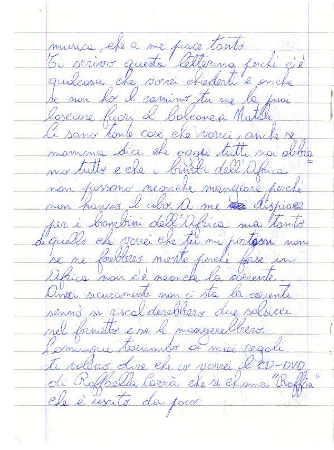 musica, che a me piace tanto.
Ti scrivo questa letterina perché c'è
qualcosa che vorrei chiederti e anche
se non ho il camino, tu me la puoi
lasciare fuori il balcone a Natale.
Ci sono tante cose che vorrei, anche se
mamma dice che oggi tutti noi abbia=
mo tutto e che i bimbi dell'Africa
non possono neanche mangiare perché
non hanno il cibo. A me dispiace
per i bambini dell'Africa ma tanto
di quello che vorrei che tu mi portassi non
se ne farebbero niente perché forse in
Africa non c'è neanche la corrente.
Anzi sicuramente non ci sta la corrente
sennò si riscalderebbero due salsicce
nel fornetto e se le mangerebbero.
Comunque tornando ai miei regali
ti volevo dire che io vorrei il CD-DVD
di Raffaella Carrà che si chiama "Raffica"
che è uscito da poco.